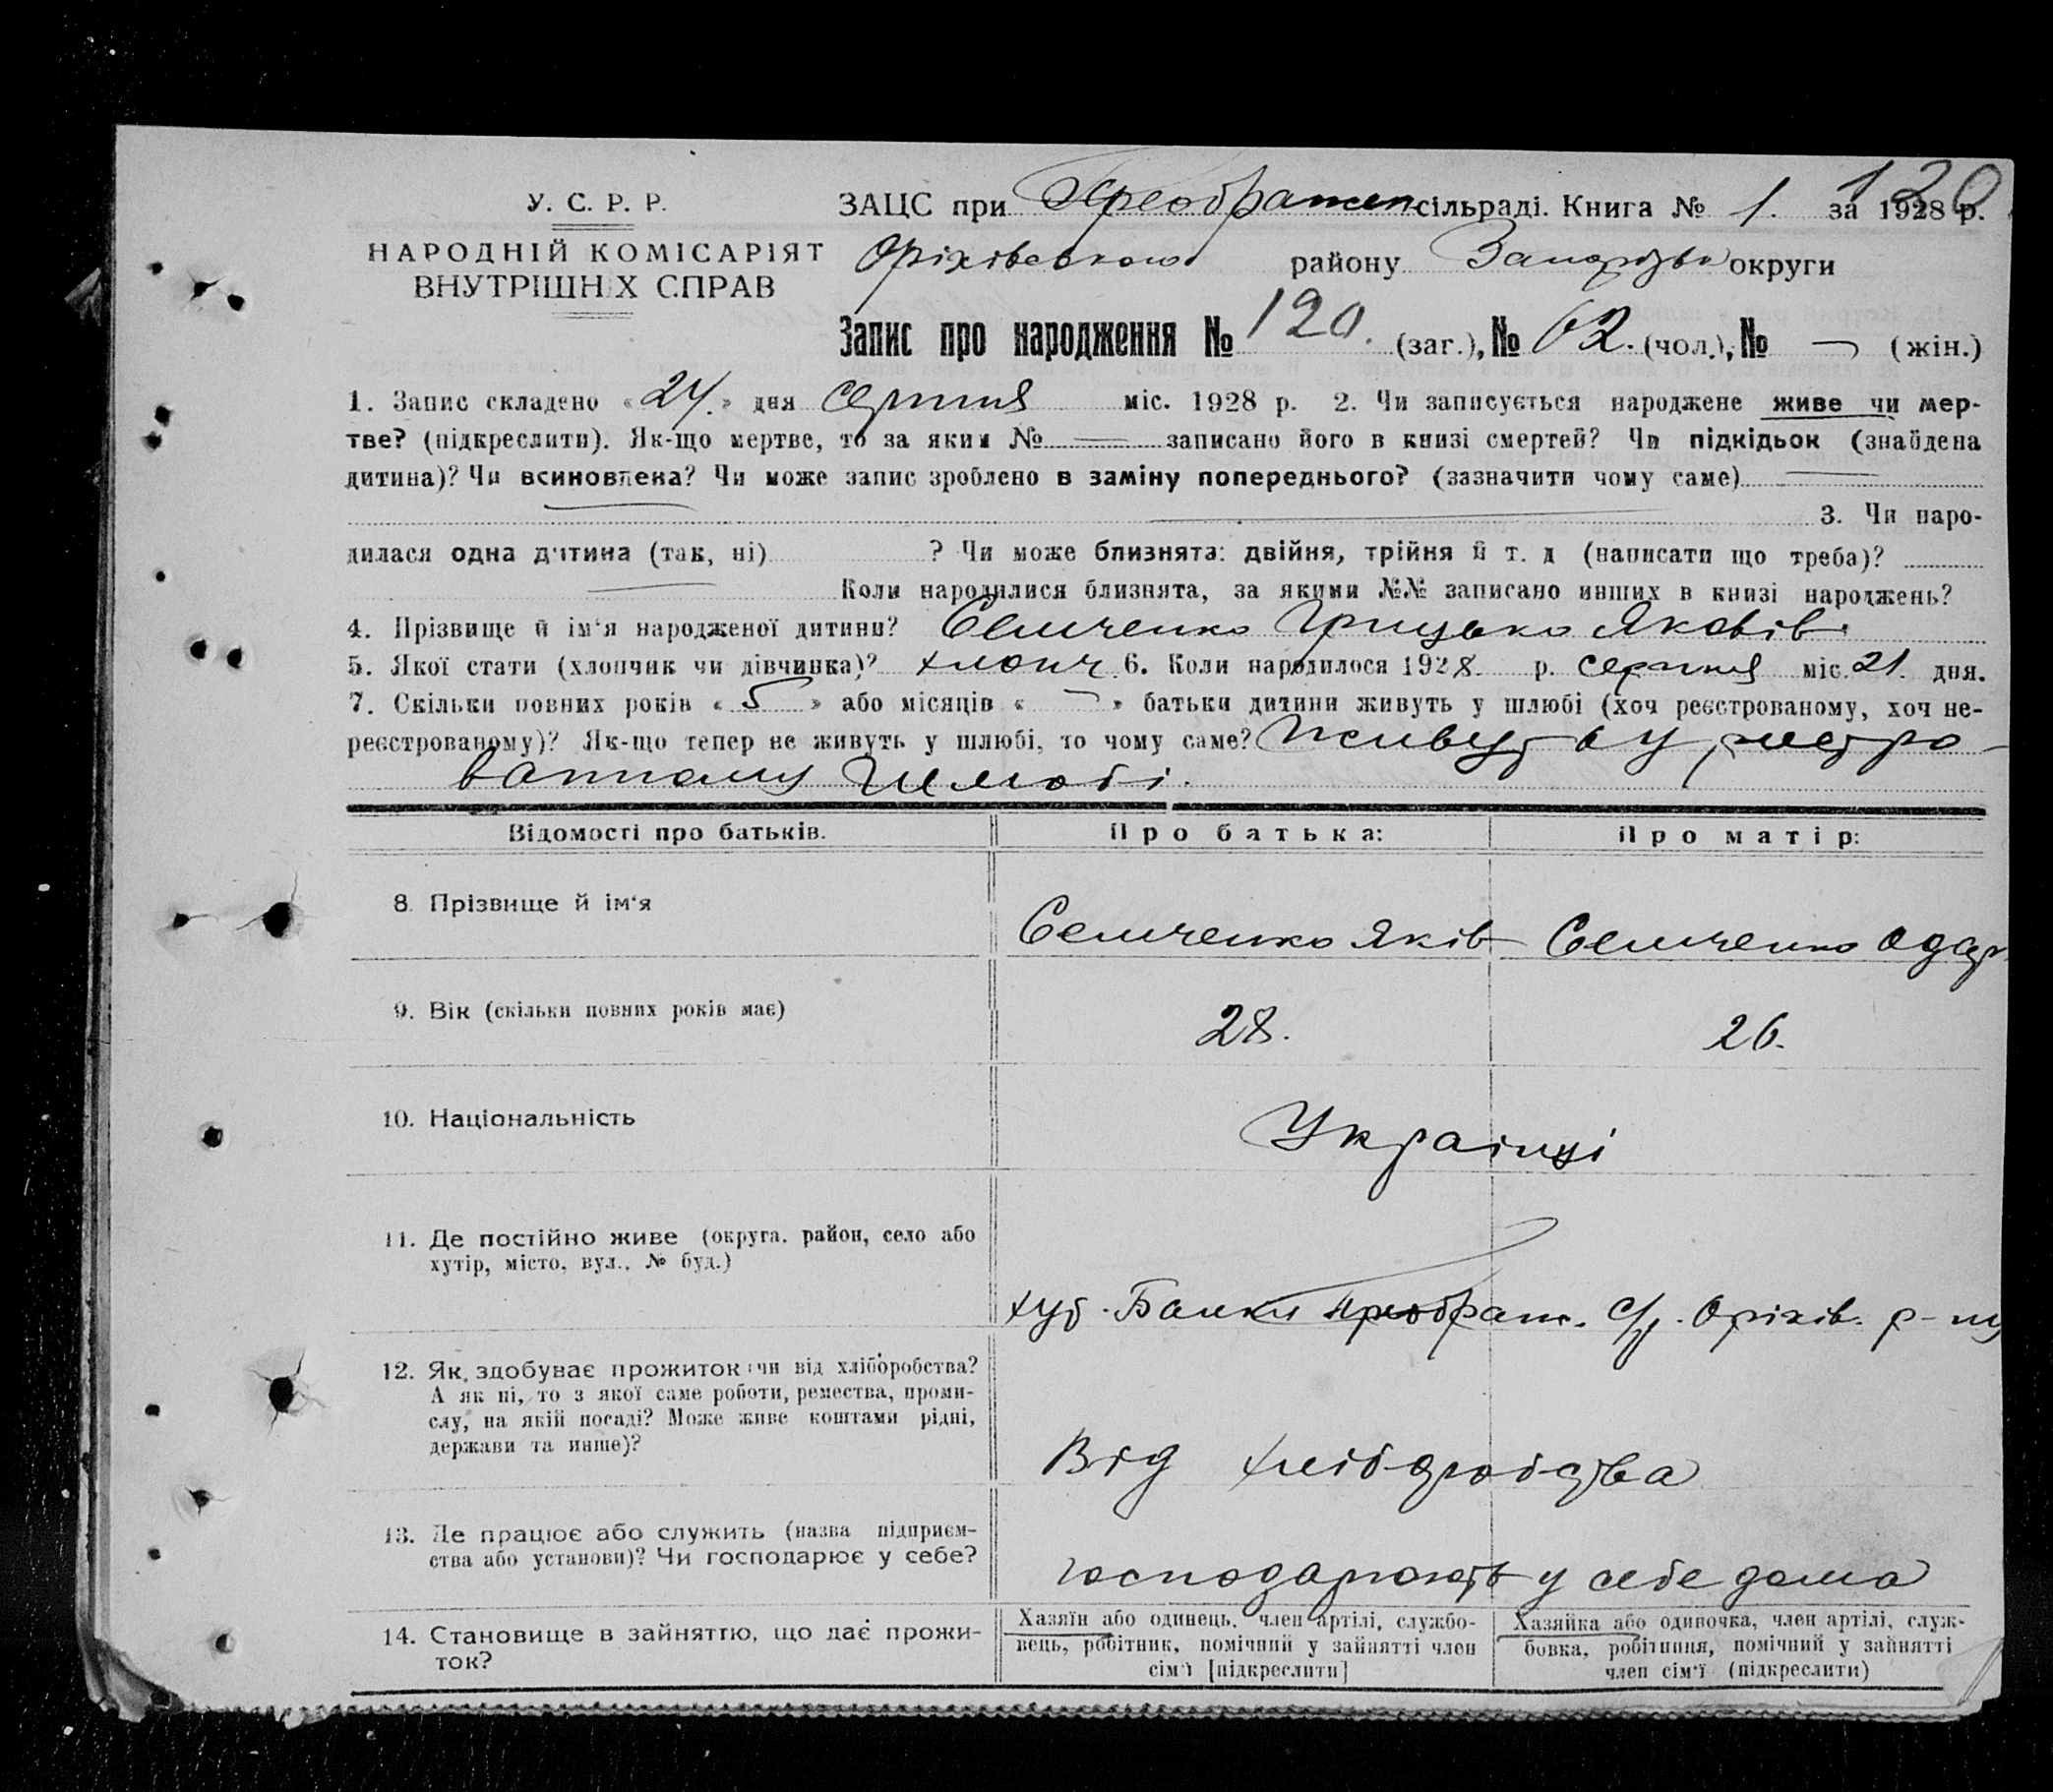 120
У. С. Р. Р.
НАРОДНІЙ КОМІСАРІЯТ
ВНУТРІШНІХ СПРАВ
ЗАЦС при Преображен. сільраді. Книга № 1. за 1928 р.
Оріхівського району Запорізьк округи
Запис про народження № 120. (заг.), № 62. (чол.), № — (жін.)
1. Запис складено «24.» дня серпня міс. 1928 р. 2. Чи записується народжене живе чи мер-
тве? (підкреслити). Як-що мертве, то за яким № — записано його в книзі смертей? Чи підкідьок (знайдена
дитина)? Чи всиновлена? Чи може запис зроблено в заміну попереднього? (зазначити чому саме) —
— 3. Чи наро-
дилася одна дитина (так, ні) ? Чи може близнята: двійня, трійня й т. д (написати що треба)?
— Коли народилися близнята, за якими №№ записано инших в книзі народжень?
4. Прізвище й ім'я народженої дитини? Семченко Грицько Яковів.
5. Якої стати (хлопчик чи дівчинка)? хлопч. 6. Коли народилося 1928. р. серпня міс. 21. дня.
7. Скільки повних років «5» або місяців «—» батьки дитини живуть у шлюбі (хоч реєстрованому, хоч не-
реєстрованому)? Як-що тепер не живуть у шлюбі, то чому саме? Живуть у реєстро-
ванному шлюбі.
Відомості про батьків. Про батька: Про матір:
8. Прізвище й ім'я Семченко Яків Семченко Одар
9. Вік (скільки повних років має) 28. 26.
10. Національність Українці
11. Де постійно живе (округа, район, село або
хутір, місто, вул., № буд.)
хут. Балки Преображ. с/р. Оріхів. р-ну
12. Як здобуває прожиток (чи від хліборобства?
А як ні, то з якої саме роботи, ремества, проми-
слу, на якій посаді? Може живе коштами рідні,
держави та инше)?
Від хліборобства
13. Де працює або служить (назва підприєм-
ства або установи)? Чи господарює у себе?
господарюють у себе дома
14. Становище в зайняттю, що дає прожи-
ток?
Хазяїн або одинець, член артілі, службо-
вець, робітник, помічний у зайнятті член
сім'ї [підкреслити]
Хазяйка або одиночка, член артілі, служ-
бовка, робітниця, помічний у зайнятті
член сім'ї (підкреслити)